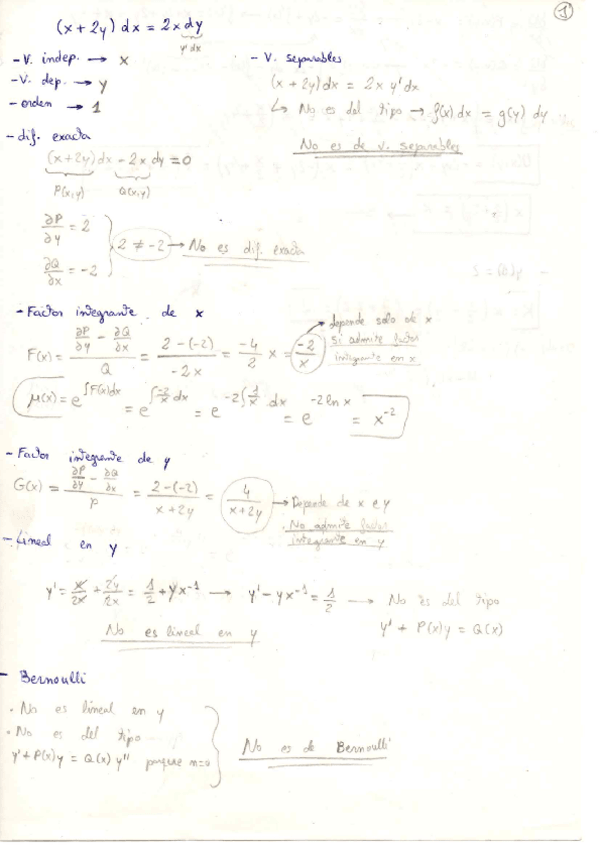 1
(x + 2y) dx = 2x dy
y' dx
- V. indep. → x
- V. dep. → y
- orden → 1
- V. separables
(x + 2y) dx = 2x y' dx
↳ No es del tipo → f(x) dx = g(y) dy
No es de v. separables
- dif. exacta
(x+2y) dx - 2x dy = 0
P(x,y) Q(x,y)
∂P/∂y = 2
∂Q/∂x = -2
2 ≠ -2 → No es dif. exacta
- Factor integrante de x
F(x) = (∂P/∂y - ∂Q/∂x)/Q = (2-(-2))/(-2x) = -4/2 x = -2/x
→ depende solo de x
si admite factor
integrante en x
μ(x) = e^∫F(x)dx = e^∫-2/x dx = e^-2∫1/x dx = e^-2 ln x = x^-2
- Factor integrante de y
G(x) = (∂P/∂y - ∂Q/∂x)/P = (2-(-2))/(x+2y) = 4/(x+2y) → Depende de x e y
. No admite factor
integrante en y
- Lineal en y
y' = x/2x + 2y/2x = 1/2 + yx^-1 → y' - yx^-1 = 1/2 → No es del tipo
y' + P(x)y = Q(x)
No es lineal en y
- Bernoulli
. No es lineal en y
. No es del tipo
y' + P(x)y = Q(x) y^n porque n=0
No es de Bernoulli